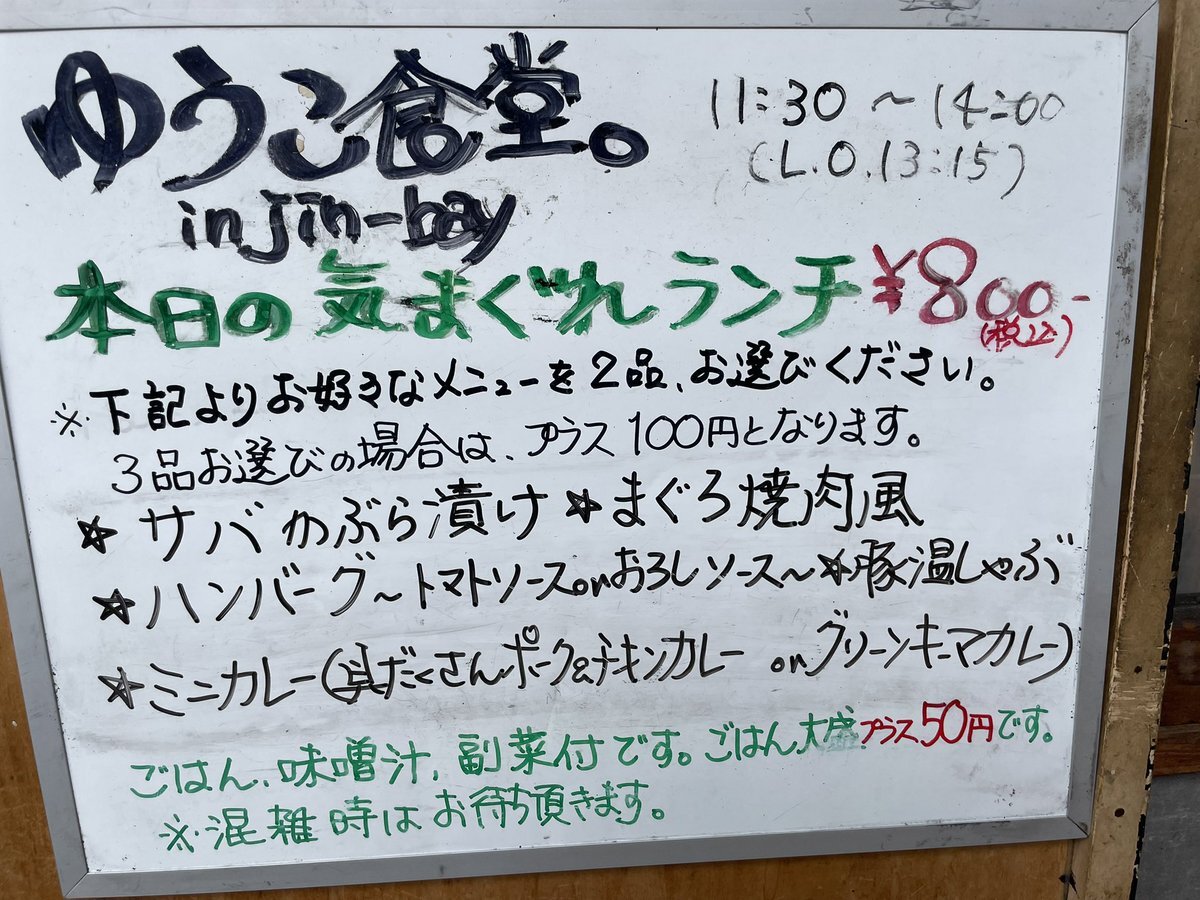 ゆうこ食堂。
11:30 〜 14:00
(L.O.13:15)
in jin-bay
本日の気まぐれランチ ¥800-
(税込)
※下記よりお好きなメニューを2品、お選びください。
3品お選びの場合は、プラス100円となります。
☆サバかぶら漬け ☆まぐろ焼肉風
☆ハンバーグ〜トマトソースorおろしソース〜☆豚温しゃぶ
☆ミニカレー(具だくさんポーク&チキンカレー orグリーンキーマカレー)
ごはん、味噌汁、副菜付です。ごはん大盛プラス50円です。
※混雑時はお待ち頂きます。